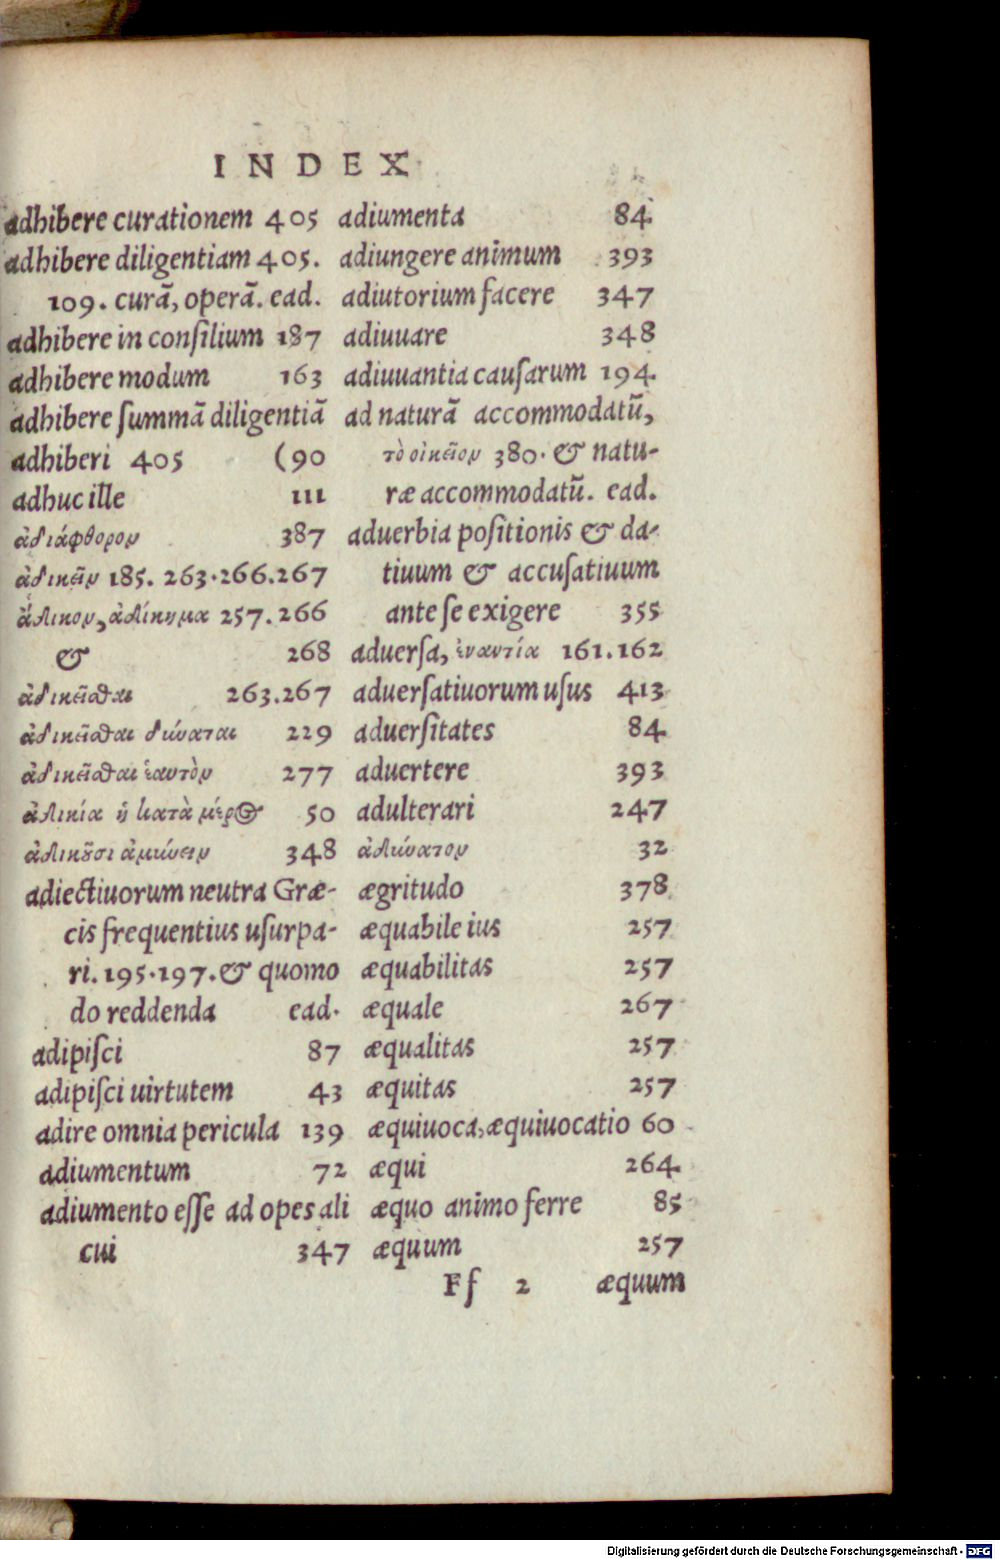 INDEX
adhibere curationem 405
adhibere diligentiam 405.
109. curā, operā. ead.
adhibere in conſilium 187
adhibere modum 163
adhibere ſummā diligentiā
adhiberi 405 (90
adhuc ille 111
ἀδιάφθορον 387
ἀδικεῖν 185. 263. 266. 267
ἄδικον, ἀδίκημα 257. 266
& 268
ἀδικεῖσθαι 263. 267
ἀδικεῖσθαι δύναται 229
ἀδικεῖσθαι ἑαυτὸν 277
ἀδικία ἡ κατὰ μέρος 50
ἀδικοῦσι ἀμύνειν 348
adiectiuorum neutra Græ-
cis frequentius uſurpa-
ri. 195. 197. & quomo
do reddenda ead.
adipiſci 87
adipiſci uirtutem 43
adire omnia pericula 139
adiumentum 72
adiumento eſſe ad opes ali
cui 347
adiumenta 84
adiungere animum 393
adiutorium facere 347
adiuuare 348
adiuuantia cauſarum 194
ad naturā accommodatū,
τὸ οἰκεῖον 380. & natu-
ræ accommodatū. ead.
aduerbia poſitionis & da-
tiuum & accuſatiuum
ante ſe exigere 355
aduerſa, ἐναντία 161. 162
aduerſatiuorum uſus 413
aduerſitates 84
aduertere 393
adulterari 247
ἀδύνατον 32
ægritudo 378
æquabile ius 257
æquabilitas 257
æquale 267
æqualitas 257
æquitas 257
æquiuoca, æquiuocatio 60
æqui 264
æquo animo ferre 85
æquum 257
Ff 2 æquum
Digitalisierung gefördert durch die Deutsche Forschungsgemeinschaft - DFG